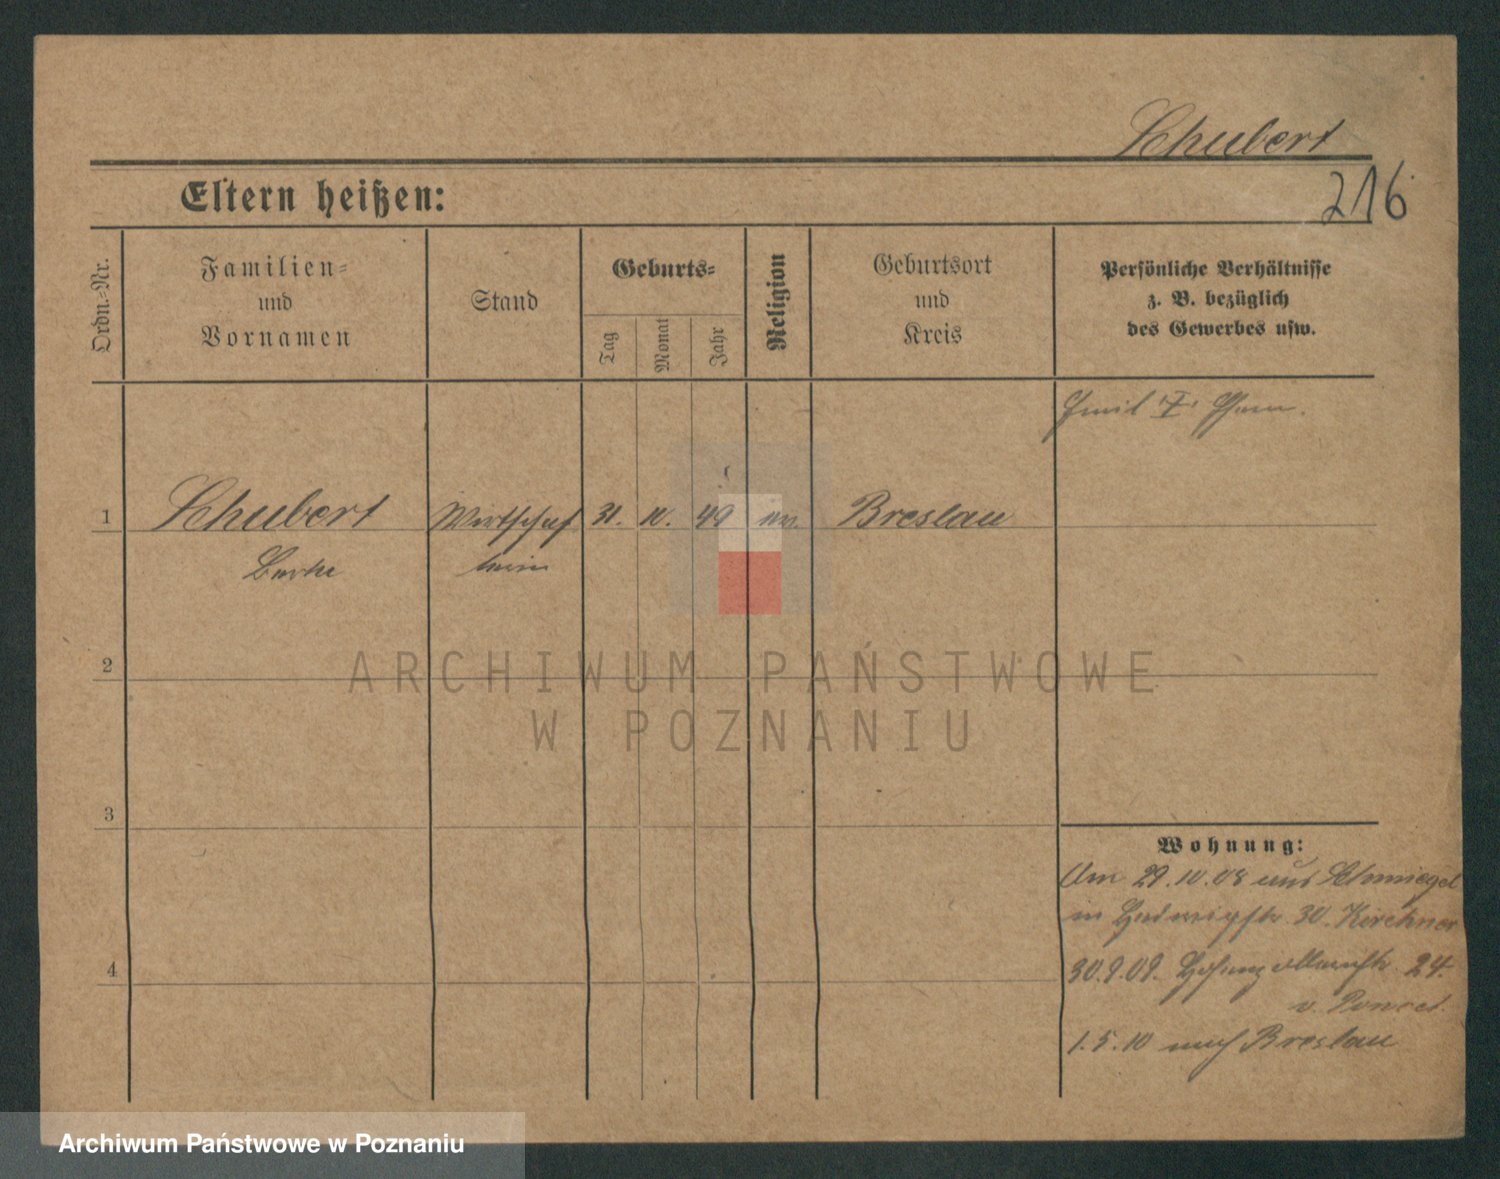 Schubert
Eltern heißen:
216
Ordn.-Nr.
Familien-
und
Vornamen
Stand
Geburts-
Tag
Monat
Jahr
Religion
Geburtsort
und
Kreis
Persönliche Verhältnisse
z. B. bezüglich
des Gewerbes usw.
1
Schubert
Wirtschaf
31.
10.
49
ev.
Breslau
terin
2
3
4
Wohnung:
Am 29.10.08 aus Schmiegel
in Hedwigstr. 30. Kirchner
30.9.09. Hohenzollernstr. 24.
v. Poncet.
1.5.10 nach Breslau
ARCHIWUM PAŃSTWOWE
W POZNANIU
Archiwum Państwowe w Poznaniu